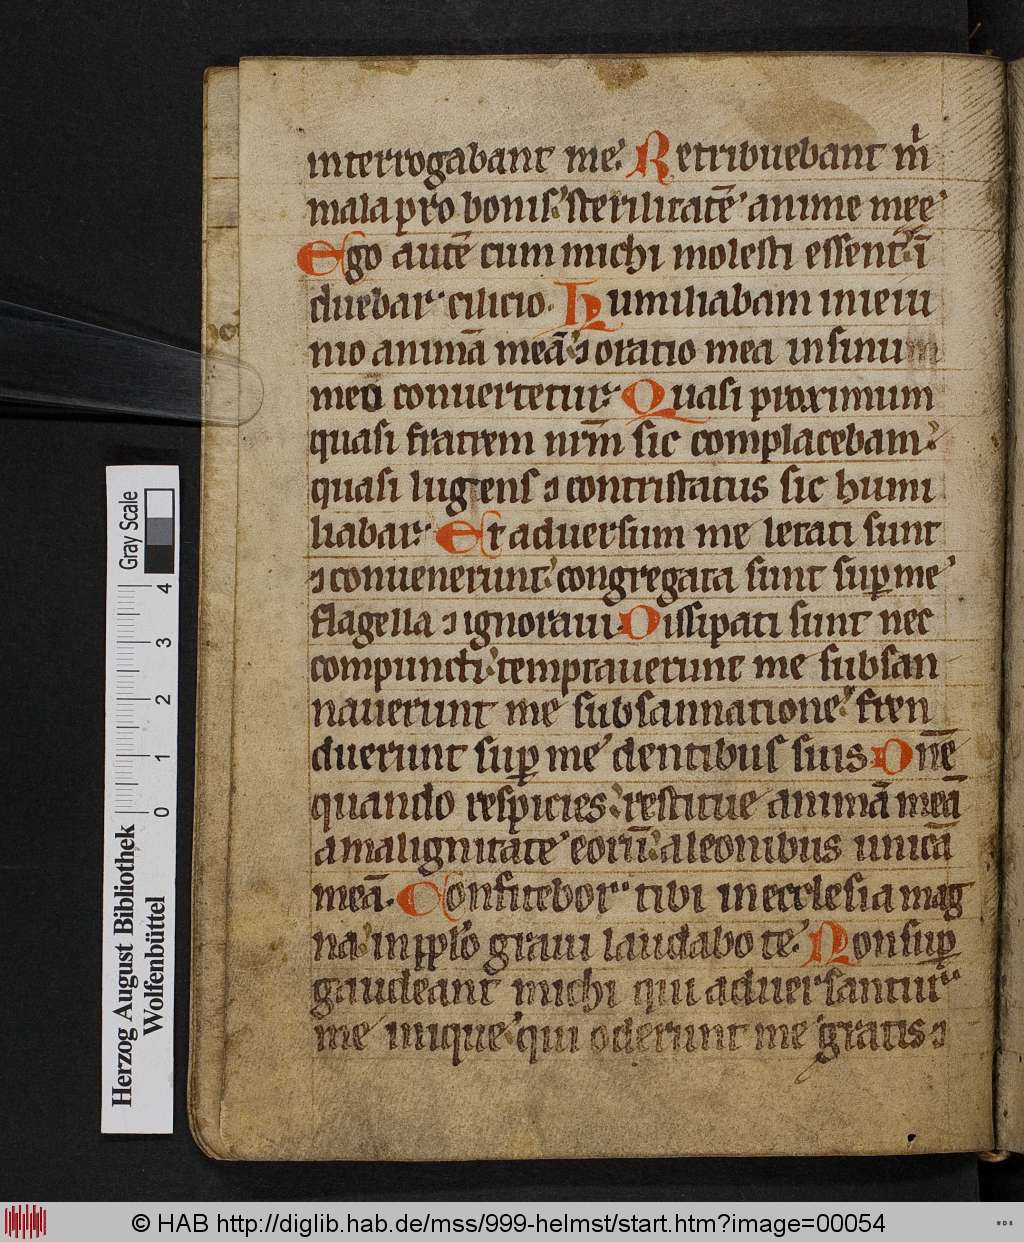 interrogabant me. Retribuebant m̄
mala pro bonis: sterilitatē anime mee
Ego autē cum michi molesti essent: ī
duebar cilicio. Humiliabam in ieiu
nio animā meā: ⁊ oratio mea in sinum
meū conuertetur. Quasi proximum
quasi fratrem nr̄m sic complacebam:
quasi lugens ⁊ contristatus sic humi
liabar. Et aduersum me letati sunt
⁊ conuenerunt: congregata sunt sup̄ me
flagella ⁊ ignoraui. Dissipati sunt nec
compuncti: temptauerunt me subsan
nauerunt me subsannatione: fren
duerunt sup̄ me dentibus suis. Dn̄e
quando respicies: restitue animā meā
a malignitate eorū: a leonibus unicā
meā. Confitebor tibi in ecclesia mag
na: in pplo graui laudabo te. Non sup̄
gaudeant michi qui aduersantur
me inique: qui oderunt me gratis ⁊
Herzog August Bibliothek
Wolfenbüttel
0 1 2 3 4
Gray Scale
© HAB http://diglib.hab.de/mss/999-helmst/start.htm?image=00054